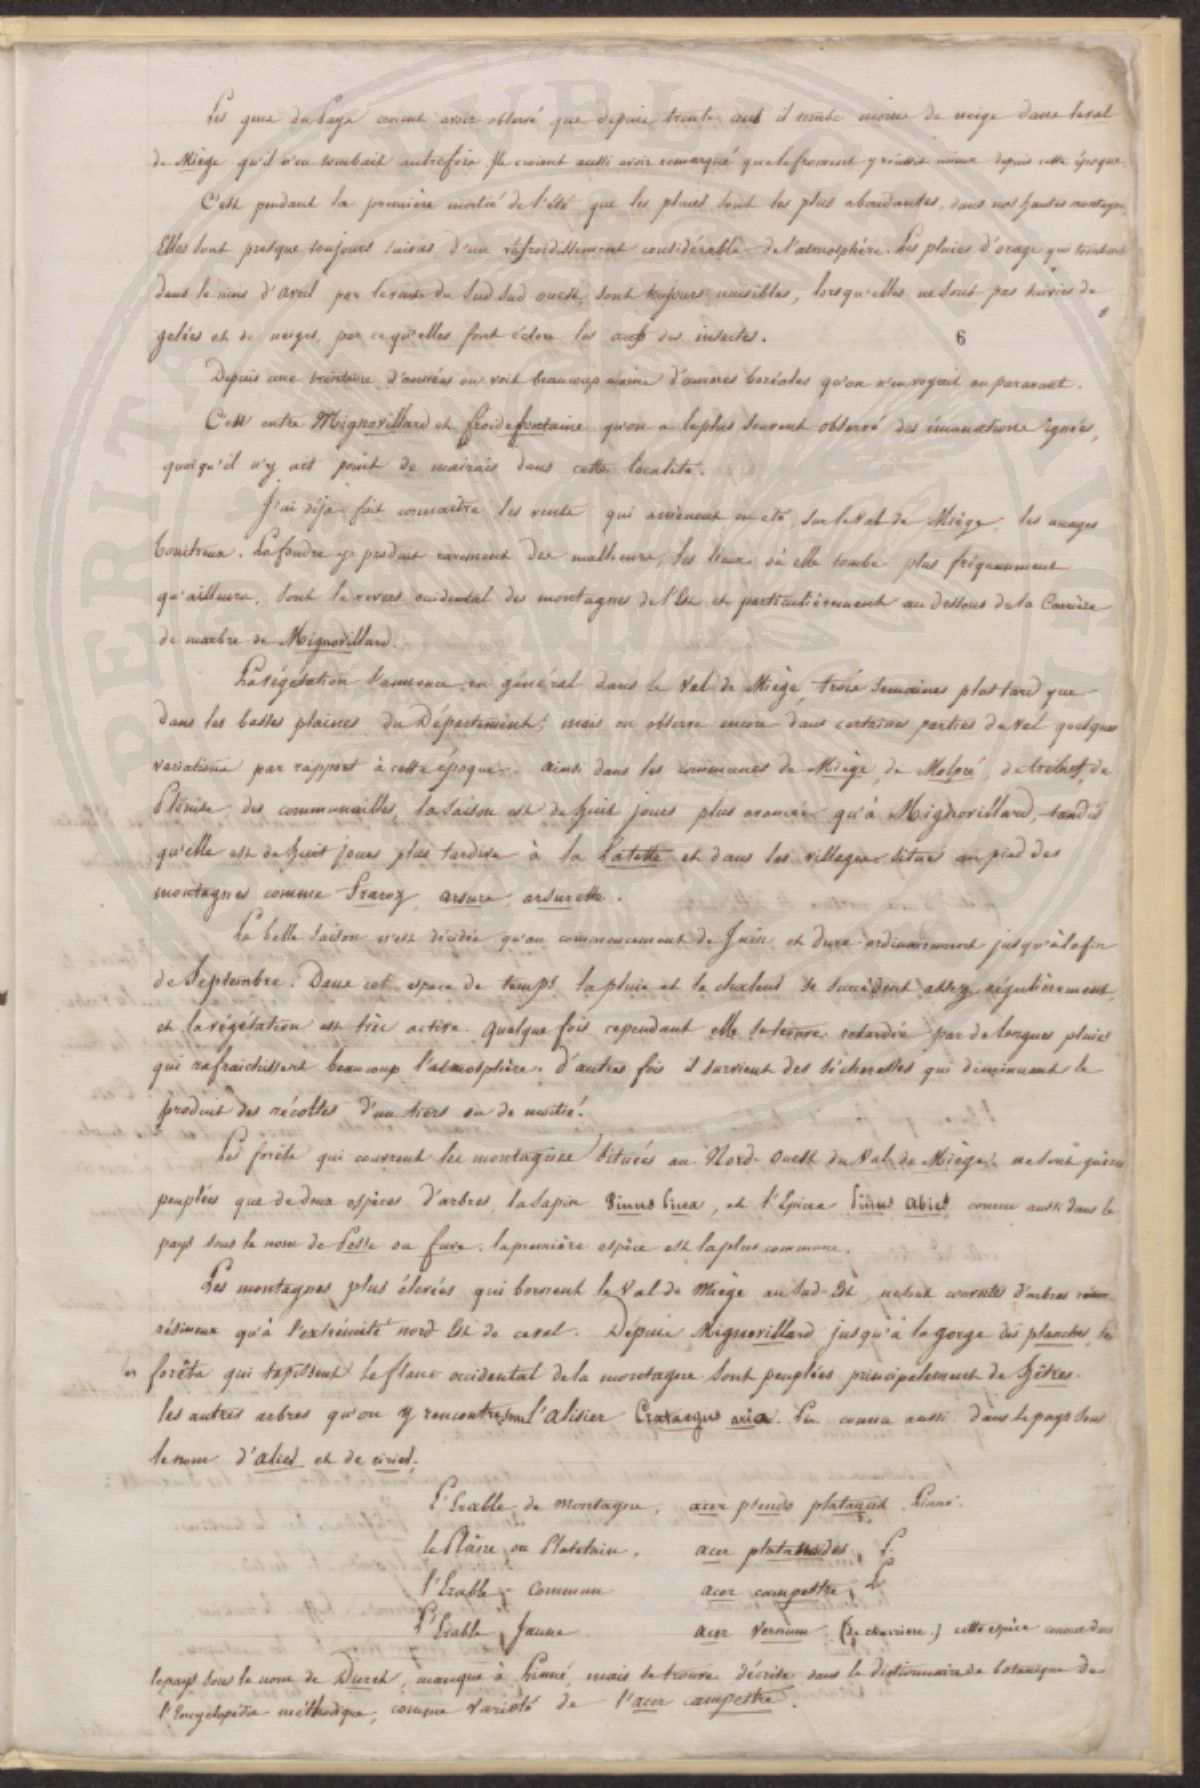 Les gens du Pays croient avoir observé que depuis trente ans il tombe moins de neige dans le val
de Miège qu'il n'en tombait autrefois. Ils croient aussi avoir remarqué que le froment y réussit mieux depuis cette époque.
C'est pendant la première moitié de l'été que les pluies sont les plus abondantes, dans nos hautes montagnes,
Elles sont presque toujours suivies d'un réfroidissement considérable de l'atmosphère. Les pluies d'orage qui tombent
dans le mois d'avril par le vent du Sud Sud ouest, sont toujours nuisibles, lorsqu'elles ne sont pas suivies de
gelées et de neiges, par ce qu'elles font éclore les œufs des insectes.
6
Depuis une trentaine d'années on voit beaucoup moins d'aurores boréales qu'on n'en voyait auparavant.
C'est entre Mignovillard et froidefontaine qu'on a le plus souvent observé des émanations ignées,
quoiqu'il n'y ait point de marais dans cette localité.
J'ai déjà fait connaitre les vents qui amènent en été, sur le Val de Miège, les nuages
. La foudre y produit rarement des malheurs, les lieux où elle tombe plus fréquemment
qu'ailleurs, sont le revers occidental des montagnes de l'Est et particulièrement au dessous de la Carrière
de marbre de Mignovillard.
La végétation s'annonce en général dans le Val de Miège, trois semaines plus tard que
dans les basses plaines du Département; mais on observe encore dans certaines parties du val quelques
variations par rapport à cette époque. ainsi dans les communes de Miège, de Molpré, de trebief, de
Plénise, des communailles, la saison est de huit jours plus avancée qu'à Mignovillard, tandis
qu'elle est de huit jours plus tardive à la Latette et dans les villages situés au pied des
montagnes comme Fraroz, arsure, arsurette.
La belle saison n'est décidée qu'au commencement de Juin et dure ordinairement jusqu'à la fin
de Septembre. Dans cet espace de temps la pluie et la chaleur se succèdent assez régulièrement,
et la végétation est très active. quelque fois cependant elle se trouve retardée par de longues pluies
qui rafraichissent beaucoup l'atmosphère. d'autres fois il survient des sécheresses qui diminuent le
produit des récoltes d'un tiers ou de moitié.
Les forêts qui couvrent les montagnes situées au Nord-Ouest du Val de Miège, ne sont guères
peuplées que de deux espèces d'arbres, le Sapin Pinus Picea, et l'Epicea Pinus Abies connu aussi dans le
pays sous le nom de Pesse ou fuve. la première espèce est la plus commune.
Les montagnes plus élevées qui bornent le Val de Miège au Sud-Est, ne sont couvertes d'arbres
résineux qu'à l'extrémité nord Est de ce val. Depuis Mignovillard jusqu'à la gorge des planches, les
forêts qui tapissent le flanc occidental de la montagne sont peuplées principalement de hêtres.
les autres arbres qu'on y rencontre, sont l'alisier Crataegus aria. Lin connu aussi dans le pays sous
le nom d'alier et de .
l'Erable de montagne, acer pseudo platanus Linné.
le Plâne, ou , acer platanoïdes, L.
l'Erable commun acer campestre, L.
L'Erable Jaune acer cette espèce connue dans
le pays sous le nom de , manque à Linné, mais se trouve décrite dans le dictionnaire de botanique de
l'Encyclopédie méthodique, comme variété de l'acer campestre.